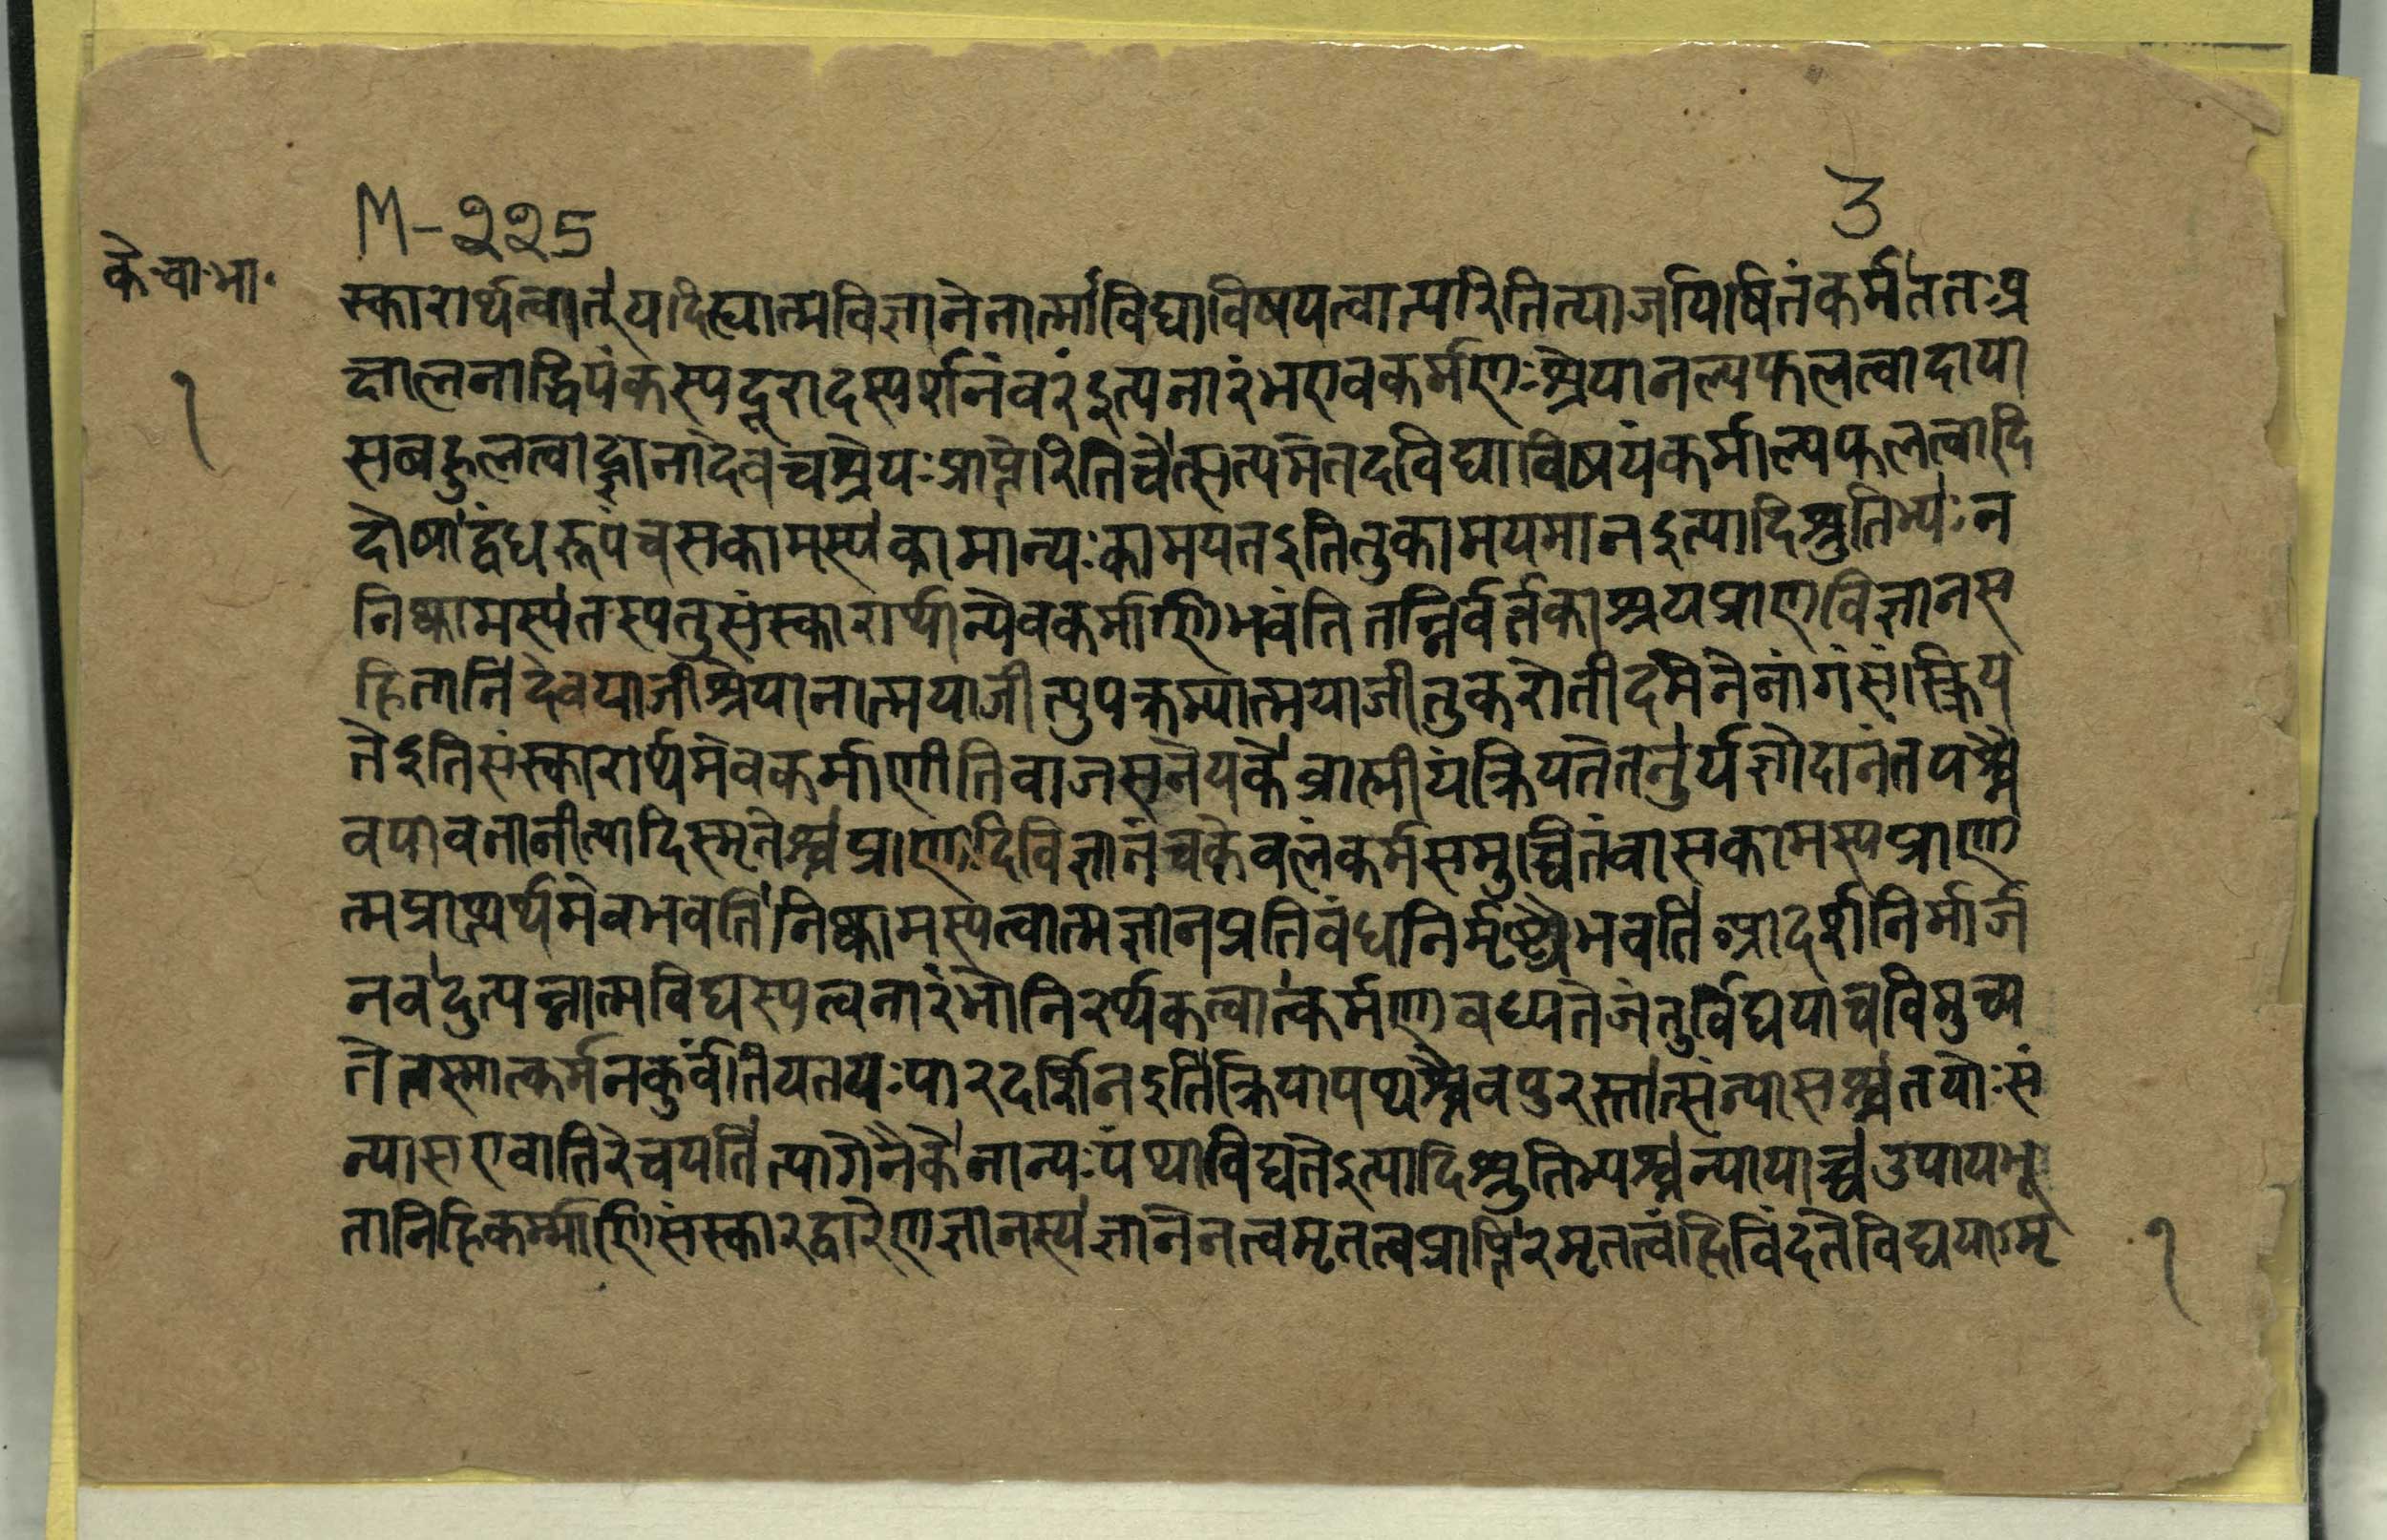 M-225
3
के॰वा॰भा॰
१
स्कारार्थत्वात् यदि ह्यात्मविज्ञानेनात्माविद्याविषयत्वात्परितित्याजयिषितंकर्मततःप्र
क्षालनाद्धिपंकस्यदूरादस्पर्शनंवरंइत्यनारंभएवकर्मणःश्रेयानल्पफलत्वादाया
सबहुलत्वाद्ज्ञानादेवचश्रेयःप्राप्तेरितिचेत्सत्यमेतदविद्याविषयंकर्माल्पफलत्वादि
दोषवद्बंधरूपंचसकामस्यकामान्यःकामयतइतिनुकामयमानइत्यादिश्रुतिभ्यःन
निष्कामस्यतस्यतुसंस्कारार्थान्येवकर्माणिभवंतितन्निर्वर्तकाश्रयप्राणविज्ञानस
हितानिदेवयाजीश्रेयानात्मयाजीत्युपक्रम्यात्मयाजीतुकरोतीदमेनेनांगंसंस्क्रिय
तेइतिसंस्कारार्थमेवकर्माणीतिवाजसनेयकेब्राह्मीयंक्रियतेतनुर्यज्ञोदानंतपश्चै
वपावनानीत्यादिस्मृतेश्चप्राणादिविज्ञानंचकेवलंकर्मसमुच्चितंवासकामस्यप्राणा
त्मप्राप्त्यर्थमेवभवतिनिष्कामस्यत्वात्मज्ञानप्रतिबंधनिर्मृष्ट्यैभवतिआदर्शनिर्मार्ज
नवदुत्पन्नात्मविद्यस्यत्वनारंभोनिरर्थकत्वात्कर्मणाबध्यतेजंतुर्विद्ययाचविमुच्य
तेतस्मात्कर्मनकुर्वंतियतयःपारदर्शिनइतिक्रियापथश्चैवपुरस्तात्संन्यासश्चतयोःसं
न्यासएवातिरेचयतित्यागेनैकेनान्यःपंथाविद्यतेइत्यादिश्रुतिभ्यश्चन्यायाच्चउपायभू
तानिहिकर्म्माणिसंस्कारद्वारेणज्ञानस्यज्ञानेनत्वमृतत्वप्राप्तिरमृतत्वंहिविंदतेविद्ययाऽमृ
१